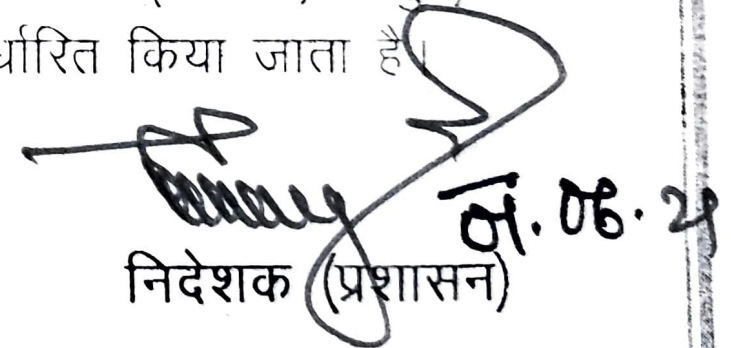 र्धारित किया जाता है।
06.
निदेशक (प्रशासन)